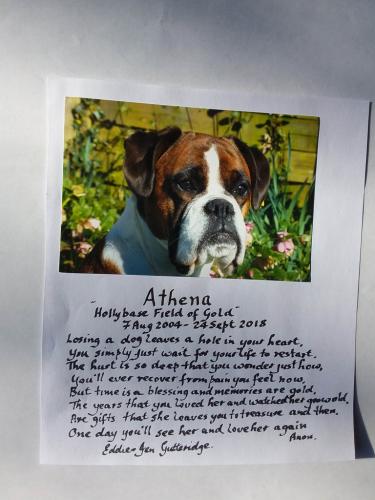 Athena
"Hollybase Field of Gold"
7 Aug 2004 - 24 Sept 2018
Losing a dog leaves a hole in your heart,
You simply just wait for your life to restart.
The hurt is so deep that you wonder just how,
You'll ever recover from pain you feel now.
But time is a blessing and memories are gold,
The years that you loved her and watched her grow old.
Are gifts that she leaves you to treasure and then,
One day you'll see her and love her again
Anon.
Eddie - Jen Gutteridge.